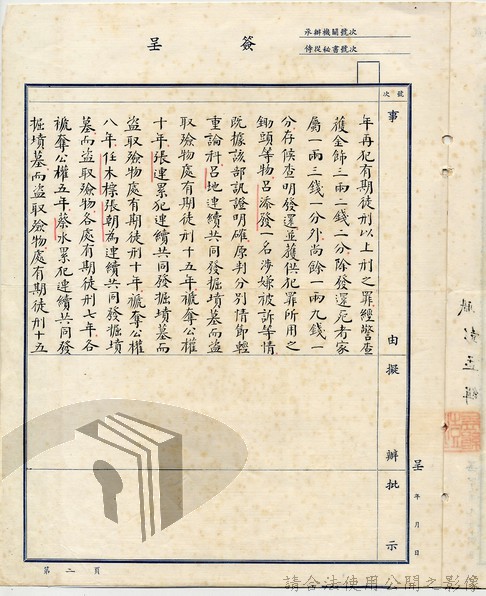 簽呈
承辦機關號次
侍從祕書號次
號次
事由
擬辦
批示
年再犯有期徒刑以上刑之罪經警查
獲金飾三兩二錢二分除發還死者家
屬一兩三錢一分外尚餘一兩九錢一
分存候查明發還並獲供犯罪所用之
鋤頭等物呂添發一名涉嫌被訴等情
既據該部訊證明確原判分別情節輕
重論科呂地連續共同發掘墳墓而盜
取殮物處有期徒刑十五年褫奪公權
十年張連累犯連續共同發掘墳墓而
盜取殮物處有期徒刑十年褫奪公權
八年任木棕張朝為連續共同發掘墳
墓而盜取殮物各處有期徒刑七年各
褫奪公權五年蔡水累犯連續共同發
掘墳墓而盜取殮物處有期徒刑十五
呈 年 月 日
第二頁
請合法使用公開之影像